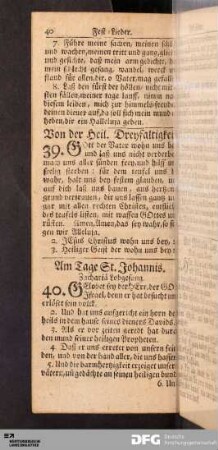 40 Fest-Lieder.
7. Führe meine sachen, meinen schl
und wachen, meinen tritt und gang, glie
und gesichte, daß mein arm gedichte, b
mein schlecht gesang, wandel, werck un
stand für allen dir, o Vater, mag gefall
8. Laß den fürst der höllen nicht mit
sten fällen meiner tage lauff, nimm na
diesem leiden, mich zur himmels-freude
deinen dieses auf, da soll sich mein mund
heben, dir ein Halleluja geben.
Von der Heil. Dreyfaltigkei
39. GOtt der Vater wohn uns be
und laß uns nicht verderbe
mach uns aller sünden frey, und hilf u
seelig sterben: für dem teufel uns b
wahr, halt uns bey festem glauben, u
auf dich laß uns bauen, aus hertzen
grund vertrauen, dir uns lassen gantz u
gar mit allen rechten Christen, entflieh
des teufels listen, mit waffen GOttes
rüsten. Amen, Amen, das sey wahr, so
gen wir Alleluja.
2. JEsus Christus wohn uns bey, 
3. Heiliger Geist der wohn uns bey
Am Tage St. Johannis.
Zachariä Lobgesang.
40. GElobet sey der HErr, der GO
Israel, denn er hat besucht un
erlöset sein volck.
2. Und hat uns aufgericht ein horn de
heils in dem hause seines dieners Davids
3. Als er vor zeiten geredt hat durc
den mund seiner heiligen Propheten.
4. Daß er uns errettet von unsern fein
den, und von der hand aller, die uns hassen
5. Und die barmhertzigkeit erzeiget unser
vätern, und gedächte an seinen heiligen bund
6. Un
DFG Deutsche
Forschungsgemeinschaft